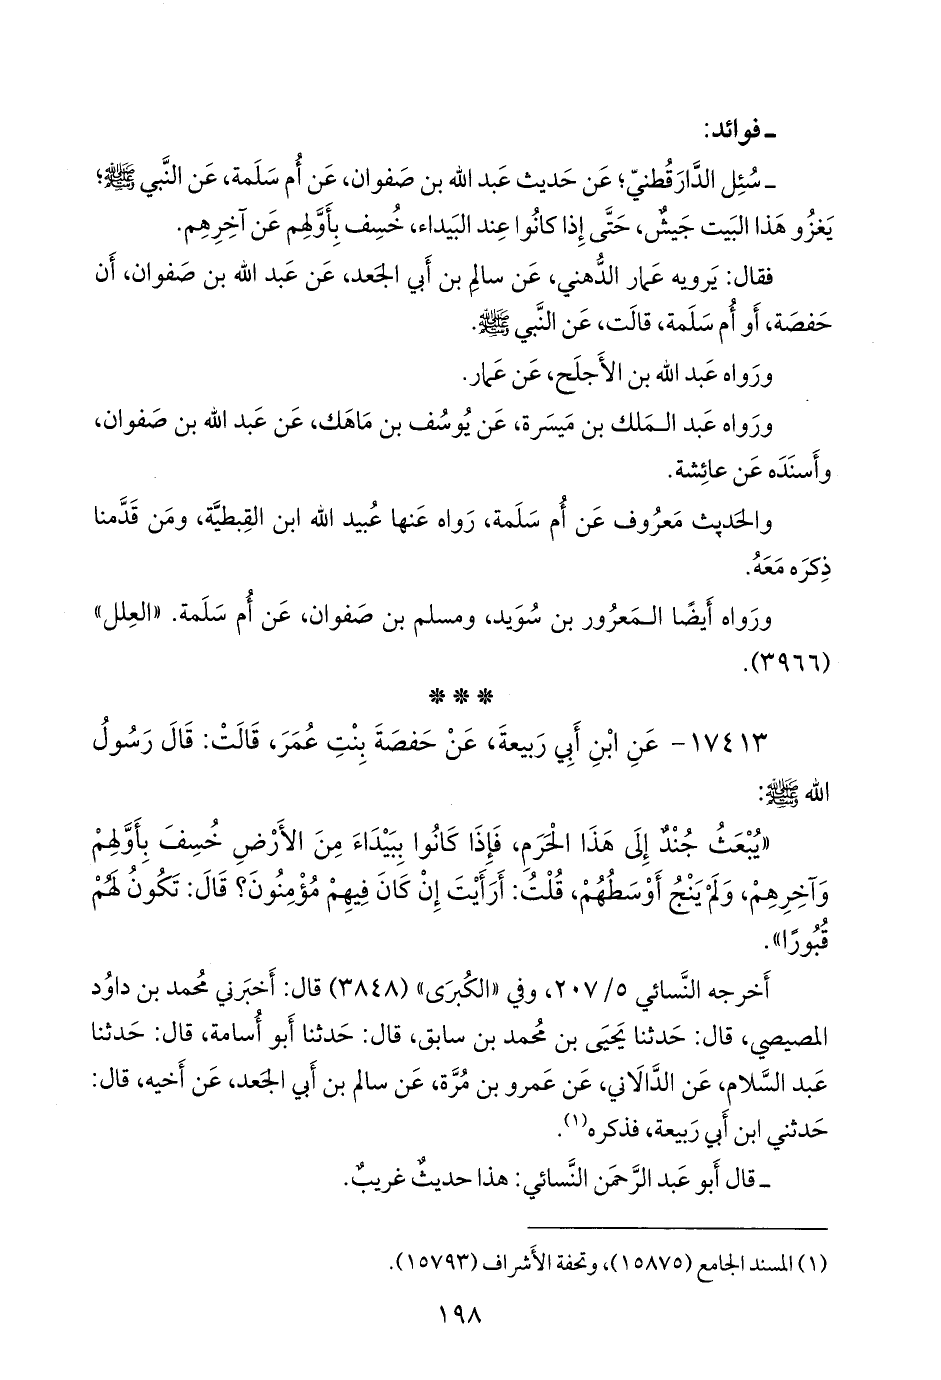 ـ فوائد:
ـ سُئِل الدَّارَقُطنيّ؛ عَن حَديث عَبد الله بن صَفوان، عَن أُم سَلَمة، عَن النَّبي ﷺ؛
يَغزُو هَذا البَيت جَيشٌ، حَتَّى إِذا كانُوا عِند البَيداء، خُسِف بِأَوَّلهِم عَن آخِرِهِم.
فقال: يَرويه عَمار الدُّهني، عَن سالم بن أَبي الجَعد، عَن عَبد الله بن صَفوان، أَن
حَفصَة، أَو أُم سَلَمة، قالَت، عَن النَّبي ﷺ.
ورَواه عَبد الله بن الأَجلَح، عَن عَمار.
ورَواه عَبد الـمَلك بن مَيسَرة، عَن يُوسُف بن مَاهَك، عَن عَبد الله بن صَفوان،
وأَسنَدَه عَن عائِشة.
والحَديث مَعرُوف عَن أُم سَلَمة، رَواه عَنها عُبيد الله ابن القِبطيَّة، ومَن قَدَّمنا
ذِكرَه مَعَهُ.
ورَواه أَيضًا الـمَعرُور بن سُوَيد، ومسلم بن صَفوان، عَن أُم سَلَمة. «العِلل»
(٣٩٦٦).
***
١٧٤١٣- عَنِ ابْنِ أَبِي رَبِيعةَ، عَنْ حَفصَةَ بِنْتِ عُمَرَ، قَالَتْ: قَالَ رَسُولُ
الله ﷺ:
«يُبْعَثُ جُنْدٌ إِلَى هَذَا الحَرَمِ، فَإِذَا كَانُوا بِبَيْدَاءَ مِنَ الأَرْضِ خُسِفَ بِأَوَّلِهِمْ
وَآخِرِهِمْ، وَلَمْ يَنْجُ أَوْسَطُهُمْ، قُلْتُ: أَرَأَيْتَ إِنْ كَانَ فِيهِمْ مُؤْمِنُونَ؟ قَالَ: تَكُونُ لَهُمْ
قُبُورًا».
أَخرجه النَّسائي ٥/ ٢٠٧، وفي «الكُبرَى» (٣٨٤٨) قال: أَخبَرني مُحمد بن داوُد
المصيصي، قال: حَدثنا يَحيَى بن مُحمد بن سابق، قال: حَدثنا أَبو أُسامة، قال: حَدثنا
عَبد السَّلام، عَن الدَّالاني، عَن عَمرو بن مُرَّة، عَن سالم بن أَبي الجَعد، عَن أَخيه، قال:
حَدثني ابن أَبي رَبيعة، فذكره(١).
ـ قال أَبو عَبد الرَّحمَن النَّسائي: هذا حديثٌ غريبٌ.
(١) المسند الجامع (١٥٨٧٥)، وتحفة الأَشراف (١٥٧٩٣).
١٩٨